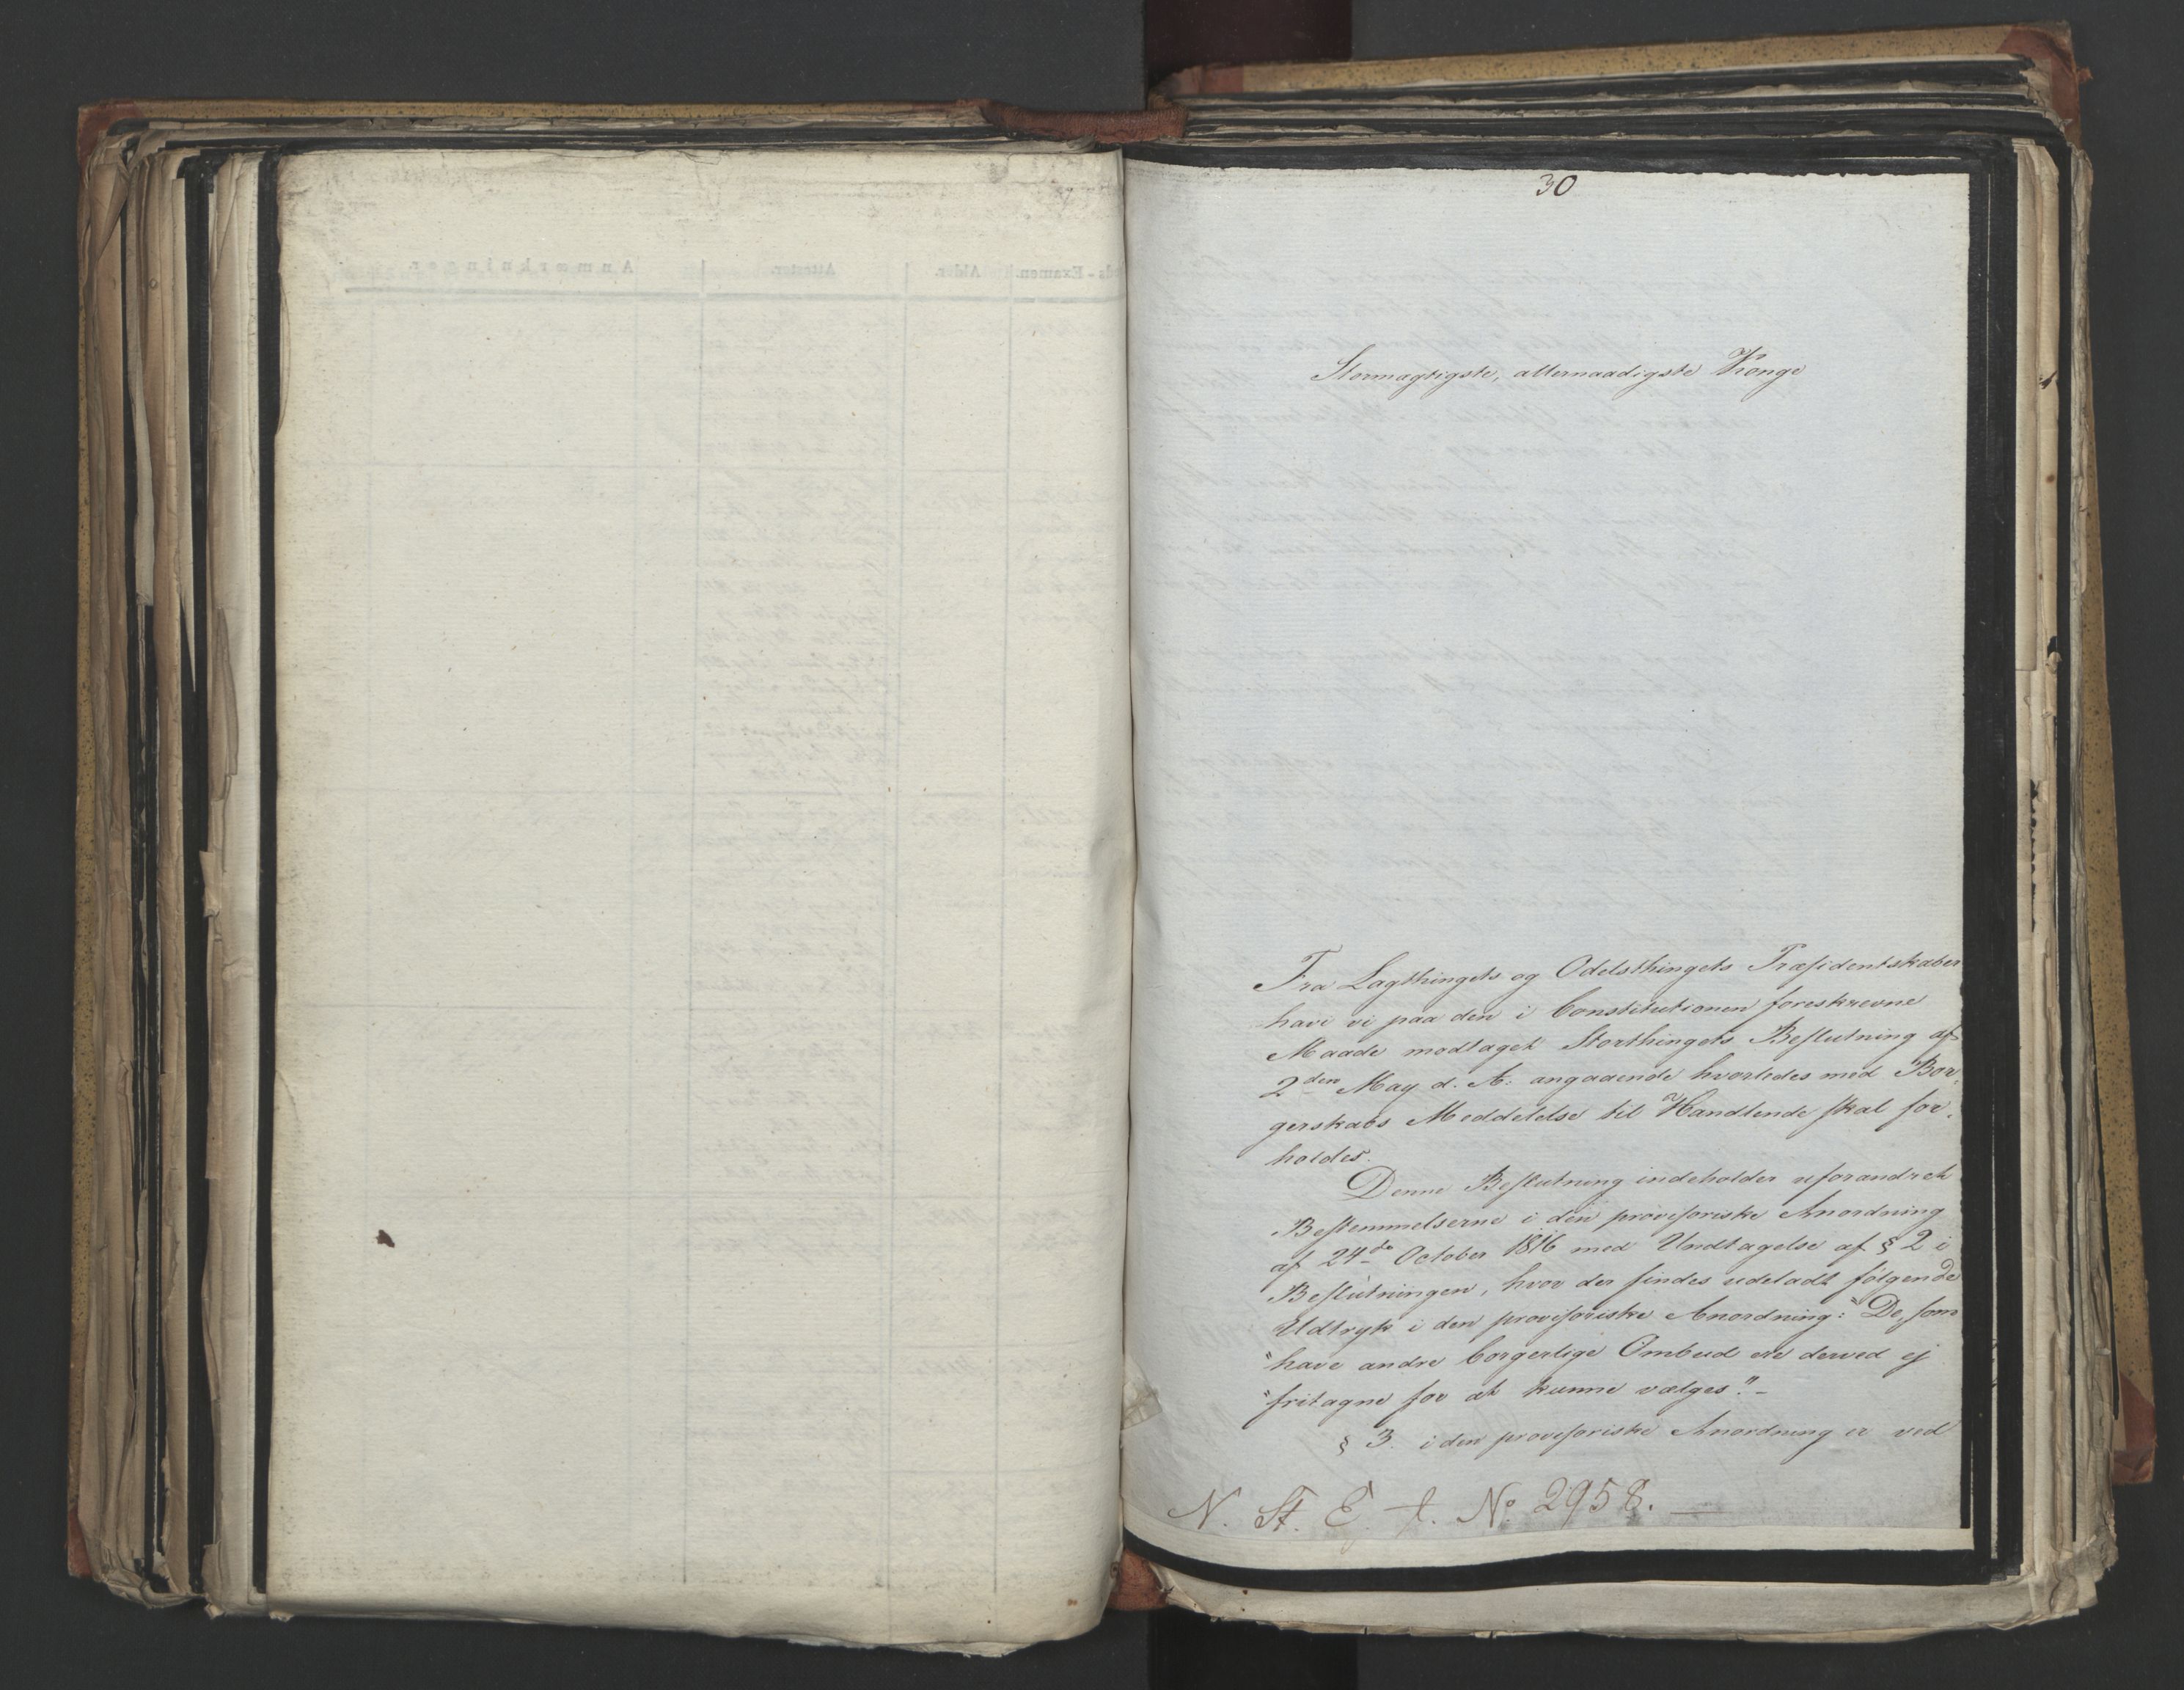 30
Stormægtigste, allernaadigste Konge
Fra Lagthingets og Odelsthingets Præsidentskaber
have vi paa den i Constitutionen foreskrevne
Maade modtaget Storthingets Beslutning af
2den May d. A. angaaende hvorledes med Bor-
gerskabs Meddelelse til Handlende skal for-
holdes.
Denne Beslutning indeholder uforandret
Bestemmelserne i den provisoriske Anordning
af 24de October 1816 med Undtagelse af § 2 i
Beslutningen, hvor der findes udeladt følgende
Udtryk i den provisoriske Anordning: "De, som
"have andre borgerlige Ombud ere derved ej
"fritagne for at kunne vælges." -
§ 3. i den provisoriske Anordning er ved
N. St. E. t. No 2958. —